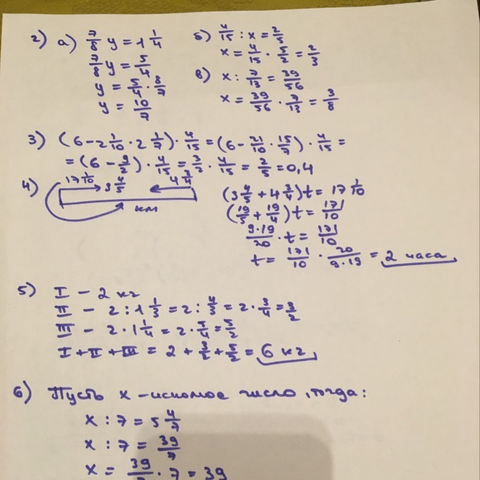 2) а) 7/8 y = 1 1/4
7/8 y = 5/4
y = 5/4 · 8/7
y = 10/7
б) 4/15 : x = 2/5
x = 4/15 · 5/2 = 2/3
в) x : 7/13 = 39/56
x = 39/56 · 7/13 = 3/8
3) (6 - 2 1/10 · 2 1/7) · 4/15 = (6 - 21/10 · 15/7) · 4/15 =
= (6 - 9/2) · 4/15 = 3/2 · 4/15 = 2/5 = 0,4
4) 17 1/10 3 4/5 4 3/4
км
(3 4/5 + 4 3/4) t = 17 1/10
(19/5 + 19/4) t = 171/10
9·19/20 · t = 171/10
t = 171/10 · 20/9·19 = 2 часа
5) I - 2 кг
II - 2 : 1 1/3 = 2 : 4/3 = 2 · 3/4 = 3/2
III - 2 · 1 1/4 = 2 · 5/4 = 5/2
I + II + III = 2 + 3/2 + 5/2 = 6 кг
6) Пусть x - искомое число, тогда:
x : 7 = 5 4/7
x : 7 = 39/7
x = 39/7 · 7 = 39